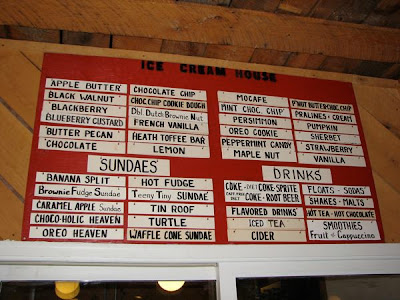 ICE CREAM HOUSE
APPLE BUTTER
BLACK WALNUT
BLACKBERRY
BLUEBERRY CUSTARD
BUTTER PECAN
CHOCOLATE
CHOCOLATE CHIP
CHOC.CHIP COOKIE DOUGH
Dbl. Dutch Brownie Nut
FRENCH VANILLA
HEATH TOFFEE BAR
LEMON
MOCAFE
MINT CHOC. CHIP
PERSIMMON
OREO COOKIE
PEPPERMINT CANDY
MAPLE NUT
P'NUT BUTTER CHOC. CHIP
PRALINES & CREAM
PUMPKIN
SHERBET
STRAWBERRY
VANILLA
SUNDAES
BANANA SPLIT
Brownie Fudge Sundae
CARAMEL APPLE Sundae
CHOCO-HOLIC HEAVEN
OREO HEAVEN
HOT FUDGE
Teeny Tiny SUNDAE
TIN ROOF
TURTLE
WAFFLE CONE SUNDAE
DRINKS
COKE - DIET COKE - SPRITE
DIET COKE - ROOT BEER
FLAVORED DRINKS
ICED TEA
CIDER
FLOATS - SODAS
SHAKES - MALTS
HOT TEA - HOT CHOCOLATE
SMOOTHIES
Fruit & Cappuccino